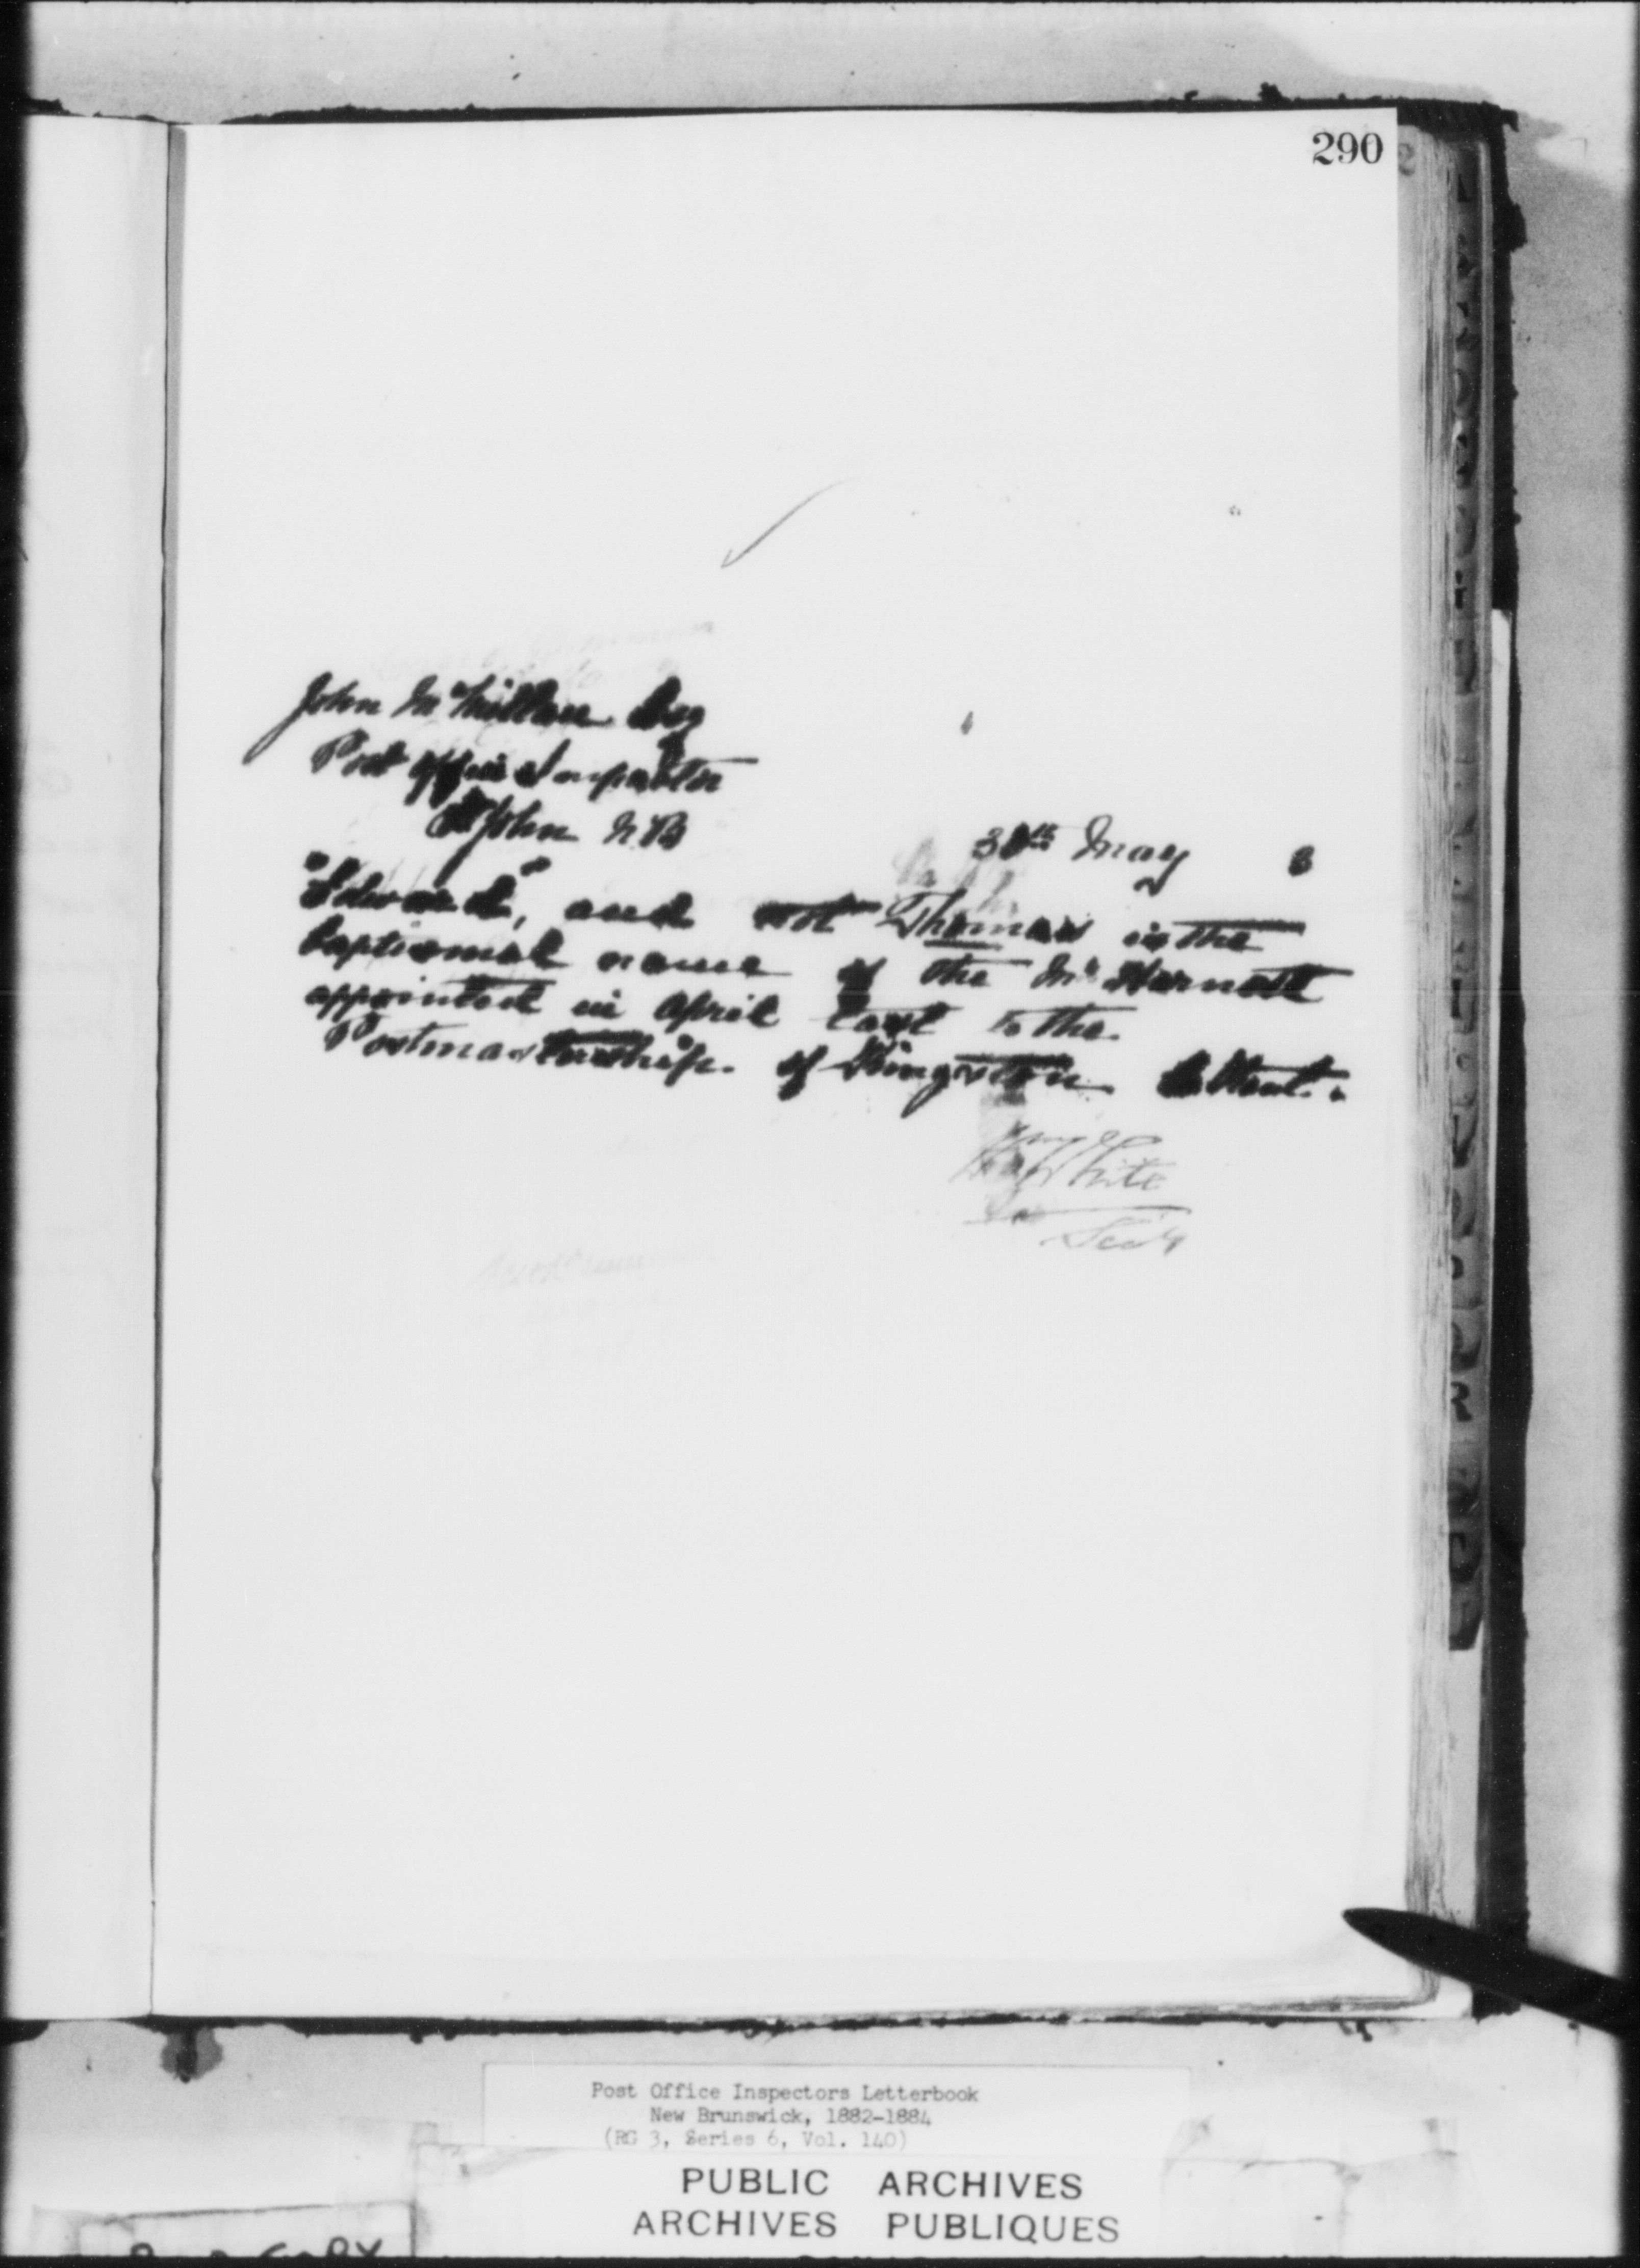 290
John McMillan Esq
Post Office Inspector
St John N.B
30th May 3
"Edward", and not Thomas is the
baptismal name of the Mr Harnett
appointed in April last to the
Postmastership of Kingston Kent.
White
Secy
Post Office Inspectors Letterbook
New Brunswick, 1882-1884
(RG 3, Series 6, Vol. 140)
PUBLIC ARCHIVES
ARCHIVES PUBLIQUES
COPY